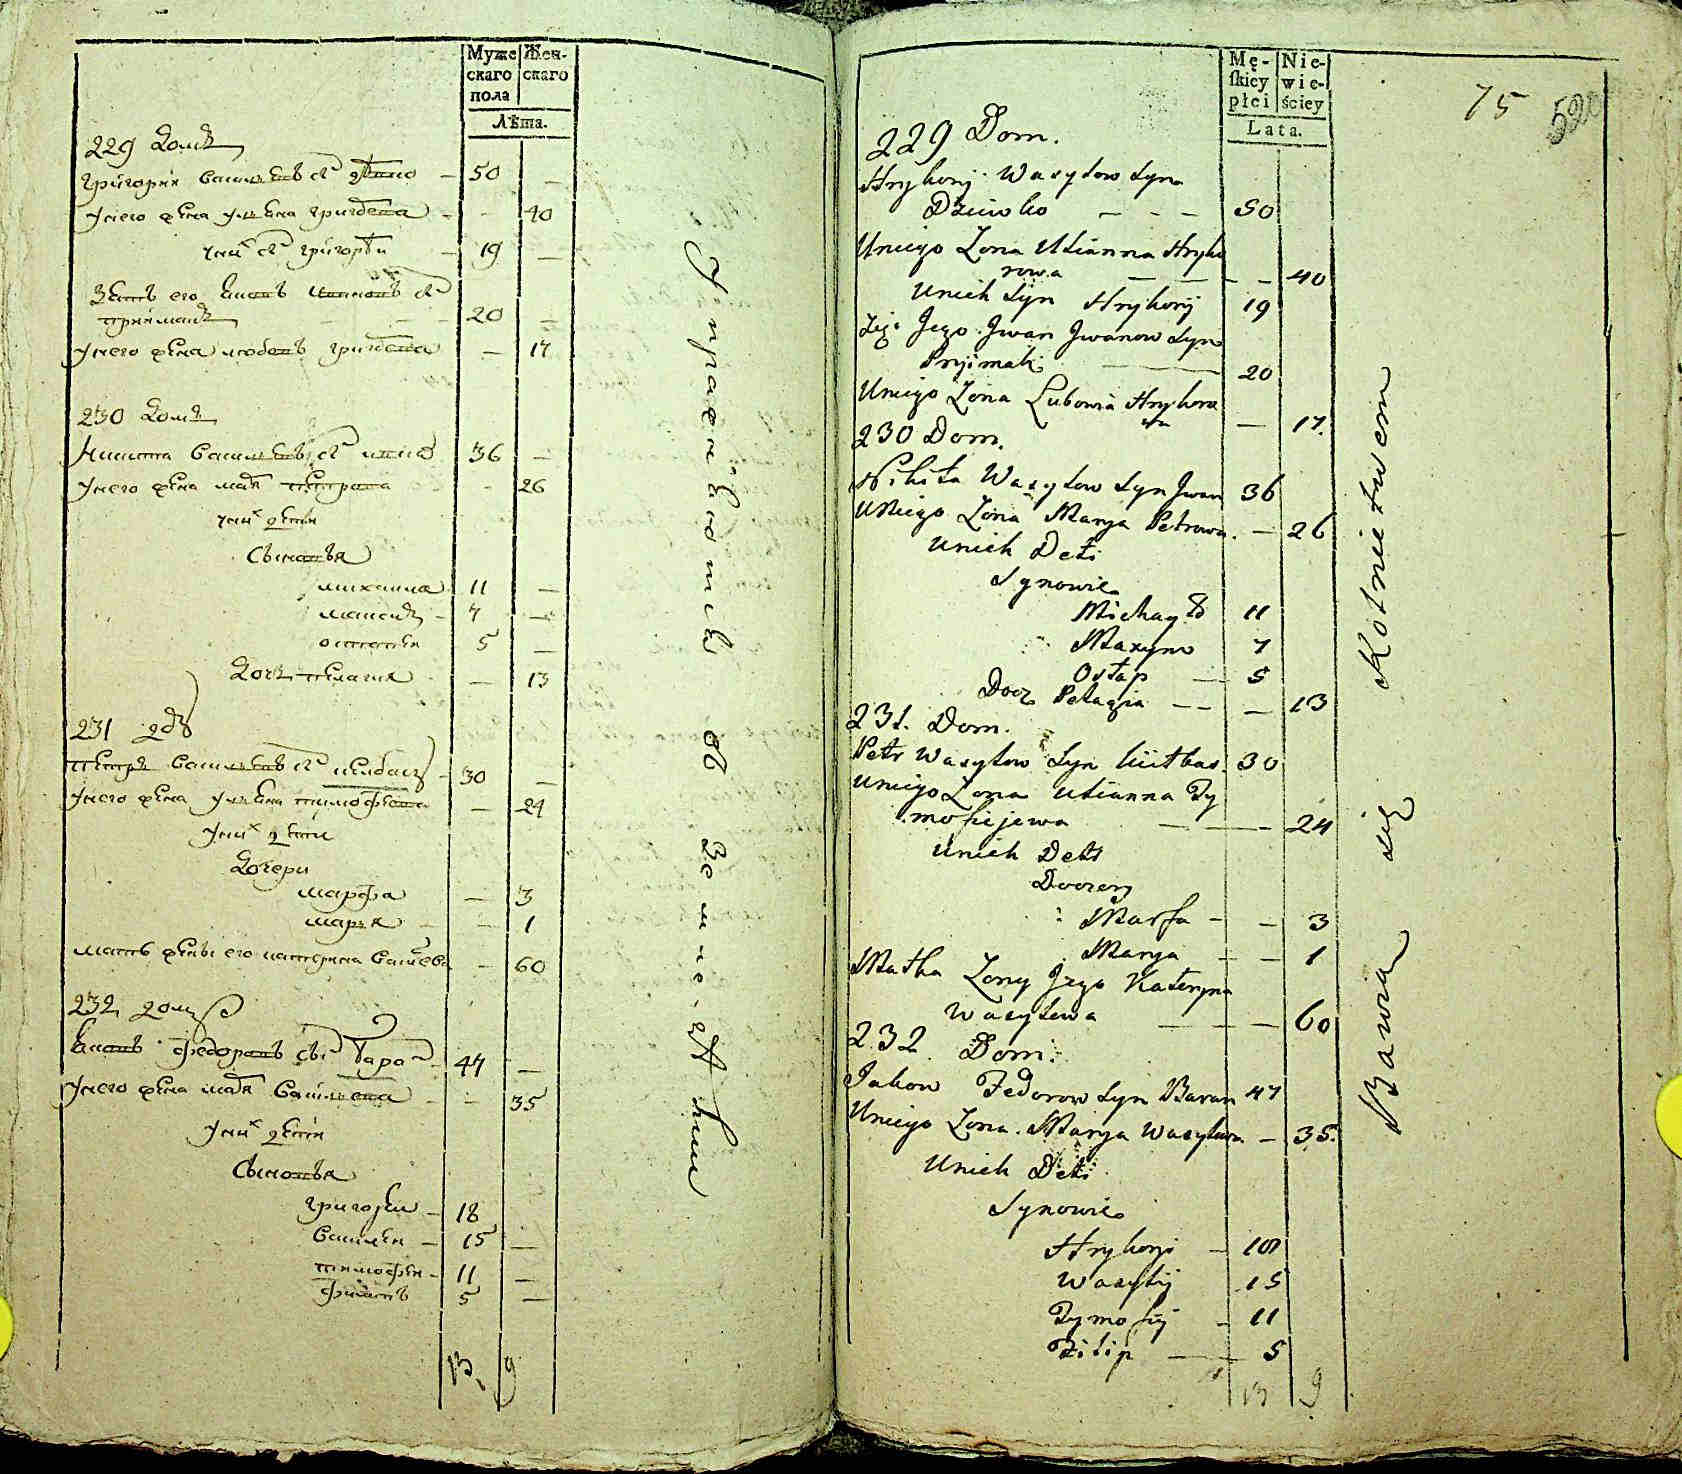 Муже
скаго
пола
Жен-
скаго
Лѣта.
229 домъ
Григорій Васильевъ с. Дѣтко — 50 —
Унего жена Ульяна Григорьева — — 40
Унихъ с. Григорѣй — 19 —
Зять его Иванъ Ивановъ с.
приймакъ — 20 —
Унего жена Любовь Григорьева — 17
230 домъ
Никита Васильевъ с. 36 —
Унего жена Марья Петрова — 26
Унихъ дѣти
Сыновья
Михаила 11 —
Максимъ 7 —
Остапъй 5 —
Дочь Пелагея — 13
231
Петръ Васильевъ с. 30 —
Унего жена Ульяна Тимофеева — 24
Унихъ дѣти
Дочери
Марфа — 3
Марья — 1
Мать жены его Катерина Васильева — 60
232 домъ
Яковъ Федоровъ сы. Баран 47 —
Унего жена Марья Васильева — 35
Унихъ дѣти
Сыновья
Григорей — 18
Василей — 15 —
Тимофей — 11 —
Филипъ 5 —
13 9
Упражняются въ Земледелии
Mę-
skiey
płci
Nie-
wie-
ściey
Lata.
75 520
229 Dom.
Hryhory Wasylow Syn
Dziwko — — — 50
Uniego Zona Ulianna Hryho
rowa — — — 40
Unich Syn Hryhory 19
Zięć Jego Jwan Jwanow Syn
Pryimak 20
Uniego Zona Lubowia Hryhoro
wa — 17.
230 Dom.
Nikita Wasylow Syn Jwan 36
Uniego Zona Marya Petrowa. — 26
Unich Deti
Synowie
Michayło 11
Maxym 7
Ostap — 5
Docz Pelagia — — — 13
231. Dom.
Petr Wasylow Syn Kiełbas. 30
Uniego Zona Ulianna Ty
mofiejewa — — — 24
Unich Deti
Doczery
Marfa — — 3
Marya — — 1
Matka Zony Jego Kateryna
Wasylewa — — — 60
232 Dom.
Jakow Fedorow Syn Baran 47
Uniego Zona. Marya Wasylewa — 35.
Unich Deti
Synowie
Hryhory — 18
Wasylij 15
Tymofiy — 11
Filip — 5
13 9
Bawią się Rolnictwem